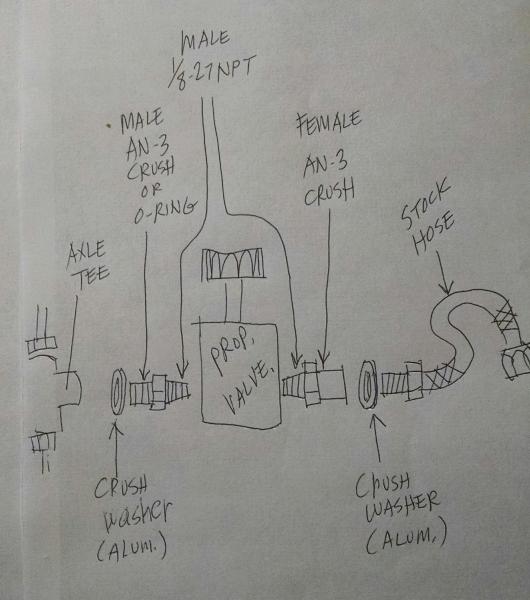 MALE
1/8-27 NPT
MALE
AN-3
CRUSH
OR
O-RING
FEMALE
AN-3
CRUSH
STOCK
HOSE
AXLE
TEE
PROP.
VALVE.
CRUSH
washer
(ALUM.)
CRUSH
WASHER
(ALUM.)